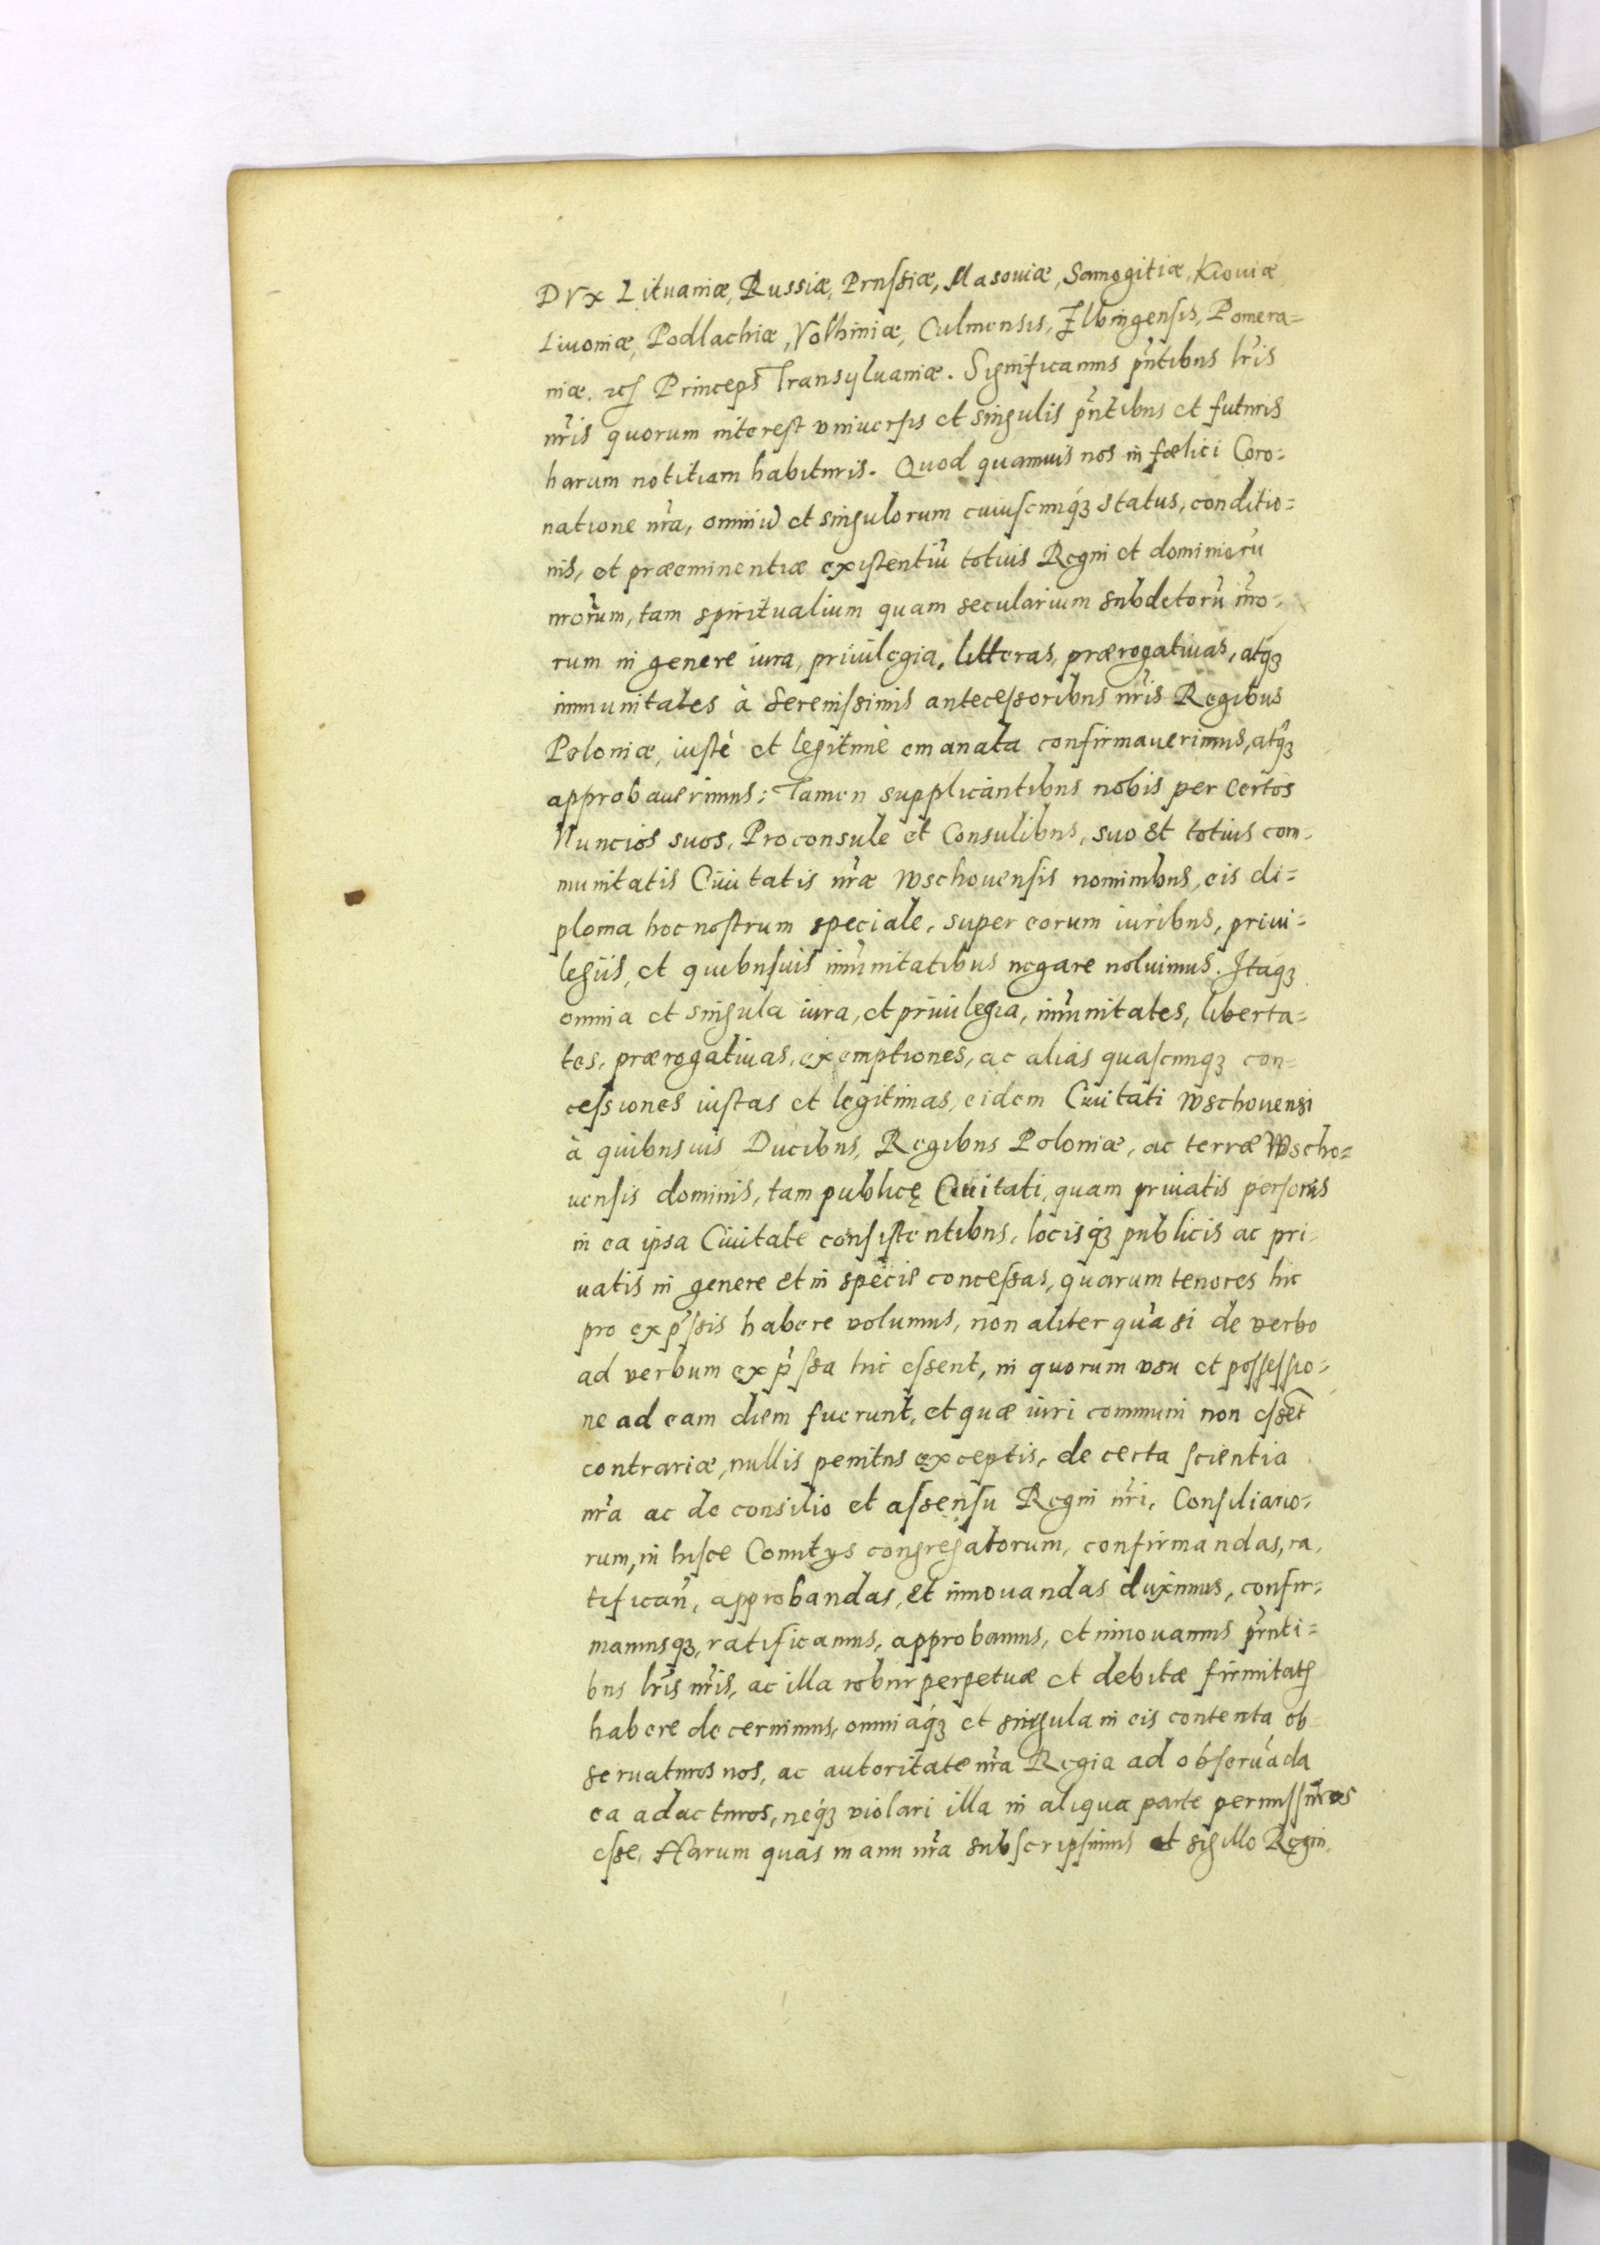 DVx Lituaniæ, Russiæ, Prussiæ, Masouiæ, Samogitiæ, Kiouiæ,
Liuoniæ, Podlachiæ, Volhiniæ, Culmensis, Elbingensis, Pomera=
niæ. etc. Princeps Transyluaniæ. Significamus pñtibus lr̃is
nr̃is quorum interest vniuersis et singulis pñtibus et futuris
harum notitiam habituris. Quod quamuis nos in fœlici Coro=
natione nr̃a, omniũ et singulorum cuiuscunq́ʒ status, conditio=
nis, et præeminentiæ existentiũ totius Regni et dominiorũ
nrõrum, tam spiritualium quam secularium subdctorũ nr̃o=
rum in genere iura, priuilegia, litteras, prærogatiuas, atqʒ
immunitates à Serenissimis antecessoribus nr̃is Regibus
Poloniæ, iustè et legitimè emanata confirmauerimus, atqʒ
approbauerimus: Tamen supplicantibus nobis per certos
Nuncios suos, Proconsule et Consulibus, suo et totius com=
munitatis Ciuitatis nr̃æ Wschouensis nominibus, eis di=
ploma hoc nostrum speciale, super eorum iuribus, priui=
legiis, et quibusuis im̃unitatibus negare noluimus. Itaqʒ
omnia et singula iura, et priuilegia, im̃unitates, liberta=
tes, prærogatiuas, exemptiones, ac alias quascunqʒ con=
cessiones iustas et legitimas, eidem Ciuitati Wschouensi
à quibusuis Ducibus, Regibus Poloniæ, ac terræ Wscho=
uensis dominis, tam publicę Ciuitati, quam priuatis personis
in ea ipsa Ciuitate consistentibus, locisq́ʒ publicis ac pri=
uatis in genere et in specie concessas, quarum tenores hic
pro exp̃ssis habere volumus, non aliter quã si de verbo
ad verbum exp̃ssa hic essent, in quorum vsu et possessio=
ne ad eam diem fuerunt, et quæ iuri communi non esset̃
contrariæ, nullis penitus exceptis, de certa scientia
nr̃a ac de consilio et assensu Regni nr̃i, Consiliario=
rum, in hisce Comitys congregatorum, confirmandas, ra=
tifican̄, approbandas, et innouandas duximus, confir=
mamusqʒ, ratificamus, approbamus, et innouamus pr̃nti=
bus lr̃is nr̃is, ac illa robur perpetuæ et debitæ firmitatis
habere decernimus, omniaq́ʒ et singula in eis contenta ob=
seruaturos nos, ac autoritate nr̃a Regia ad obseruãda
ea adacturos, neq́ʒ violari illa in aliqua parte permissuros
esse. Harum quas manu nr̃a subscripsimus et sigillo Regni